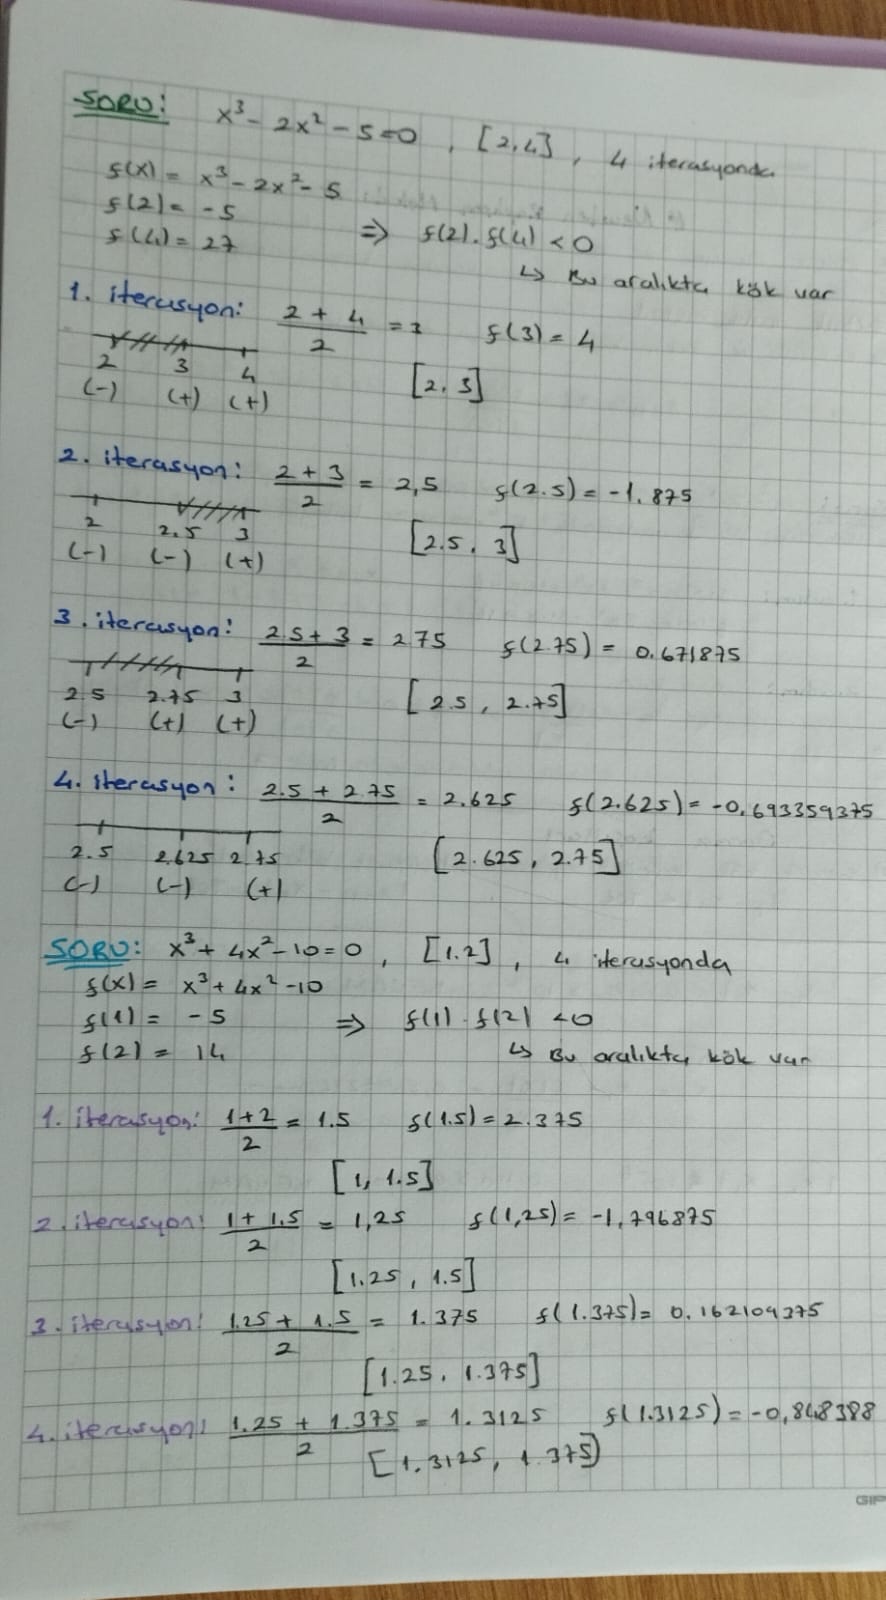 SORU: x³ - 2x² - 5 = 0 , [2,4] , 4 iterasyonda
f(x) = x³ - 2x² - 5
f(2) = -5
f(4) = 27 ⇒ f(2). f(4) < 0
↳ Bu aralıkta kök var
1. iterasyon: (2 + 4)/2 = 3 f(3) = 4
2 3 4
(-) (+) (+) [2, 3]
2. iterasyon: (2 + 3)/2 = 2,5 f(2.5) = -1.875
2 2.5 3
(-) (-) (+) [2.5, 3]
3. iterasyon: (2.5 + 3)/2 = 2.75 f(2.75) = 0.671875
2.5 2.75 3
(-) (+) (+) [2.5, 2.75]
4. iterasyon: (2.5 + 2.75)/2 = 2.625 f(2.625) = -0.693359375
2.5 2.625 2.75 [2.625, 2.75]
(-) (-) (+)
SORU: x³ + 4x² - 10 = 0 , [1.2] , 4 iterasyonda
f(x) = x³ + 4x² - 10
f(1) = -5 ⇒ f(1) . f(2) < 0
f(2) = 14 ↳ Bu aralıkta kök var
1. iterasyon: (1+2)/2 = 1.5 f(1.5) = 2.375
[1, 1.5]
2. iterasyon: (1 + 1.5)/2 = 1,25 f(1,25) = -1,796875
[1.25, 1.5]
3. iterasyon: (1.25 + 1.5)/2 = 1.375 f(1.375) = 0.162109375
[1.25, 1.375]
4. iterasyon: (1.25 + 1.375)/2 = 1.3125 f(1.3125) = -0,848388
[1.3125, 1.375]